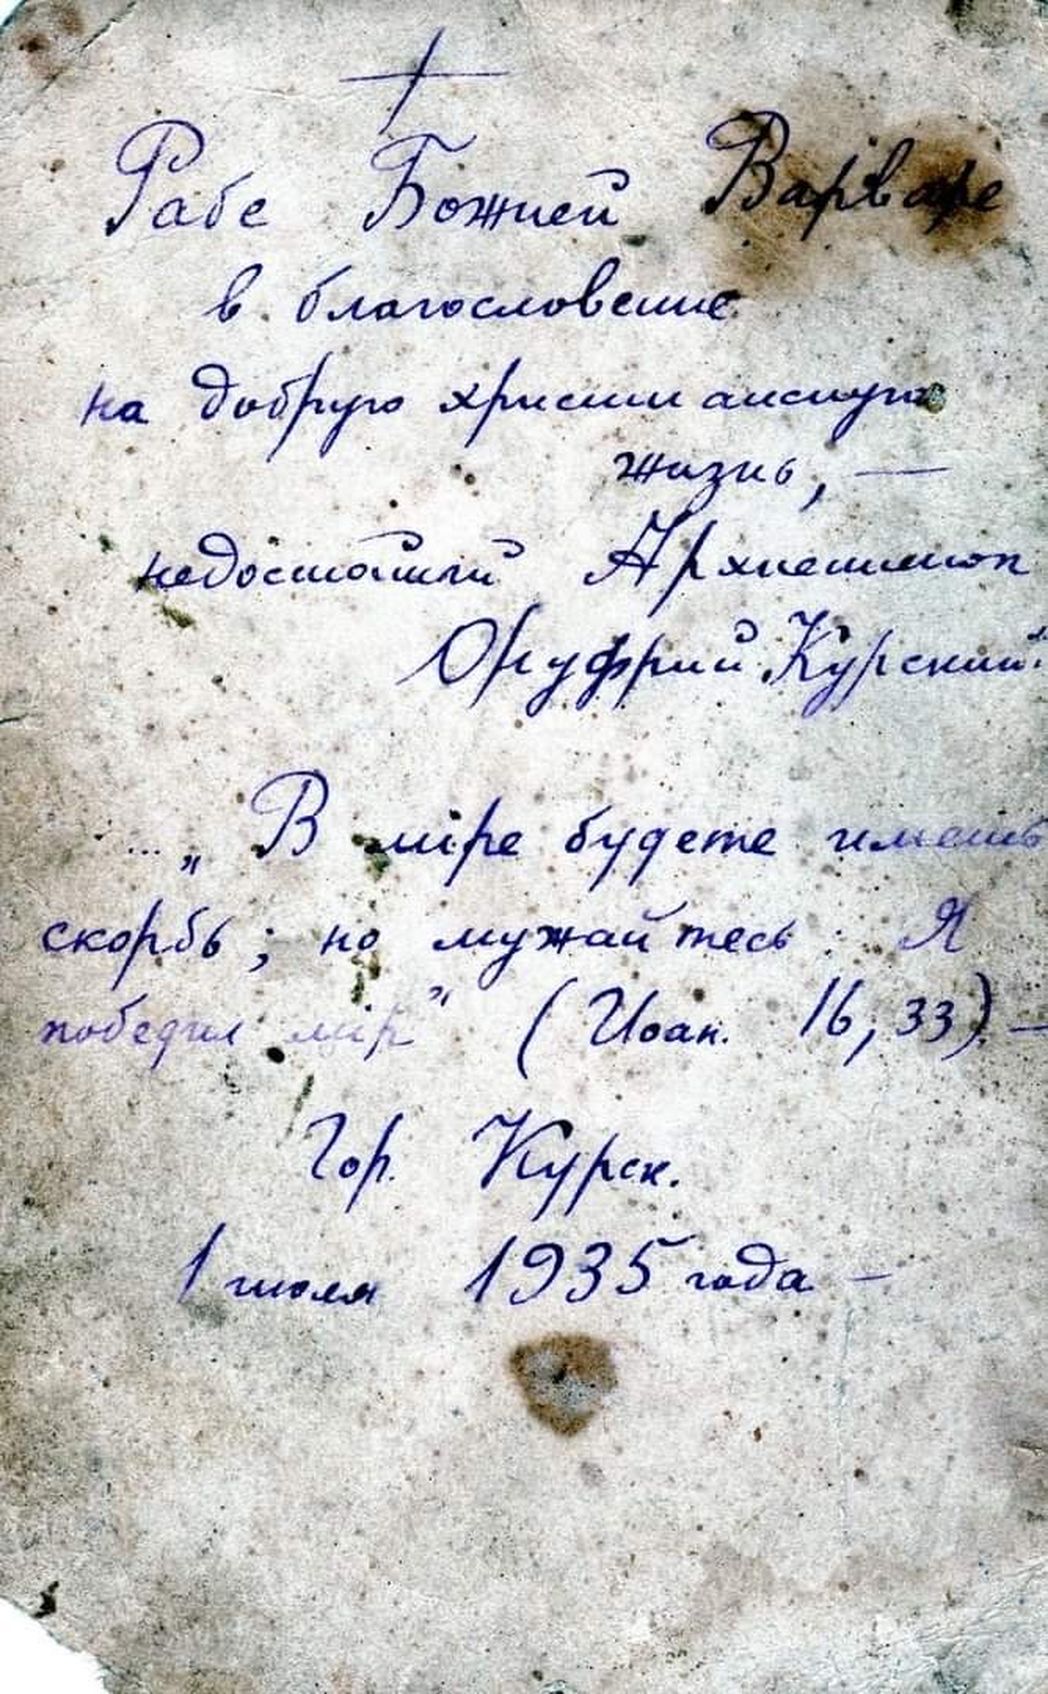 Рабе Божией Варваре
в благословение
на добрую христианскую
жизнь, —
недостойный Архиепископ
Онуфрий Курский.
... „В мiре будете иметь
скорбь; но мужайтесь: Я
победил мiр" (Иоан. 16, 33). —
Гор. Курск.
1 июля 1935 года —